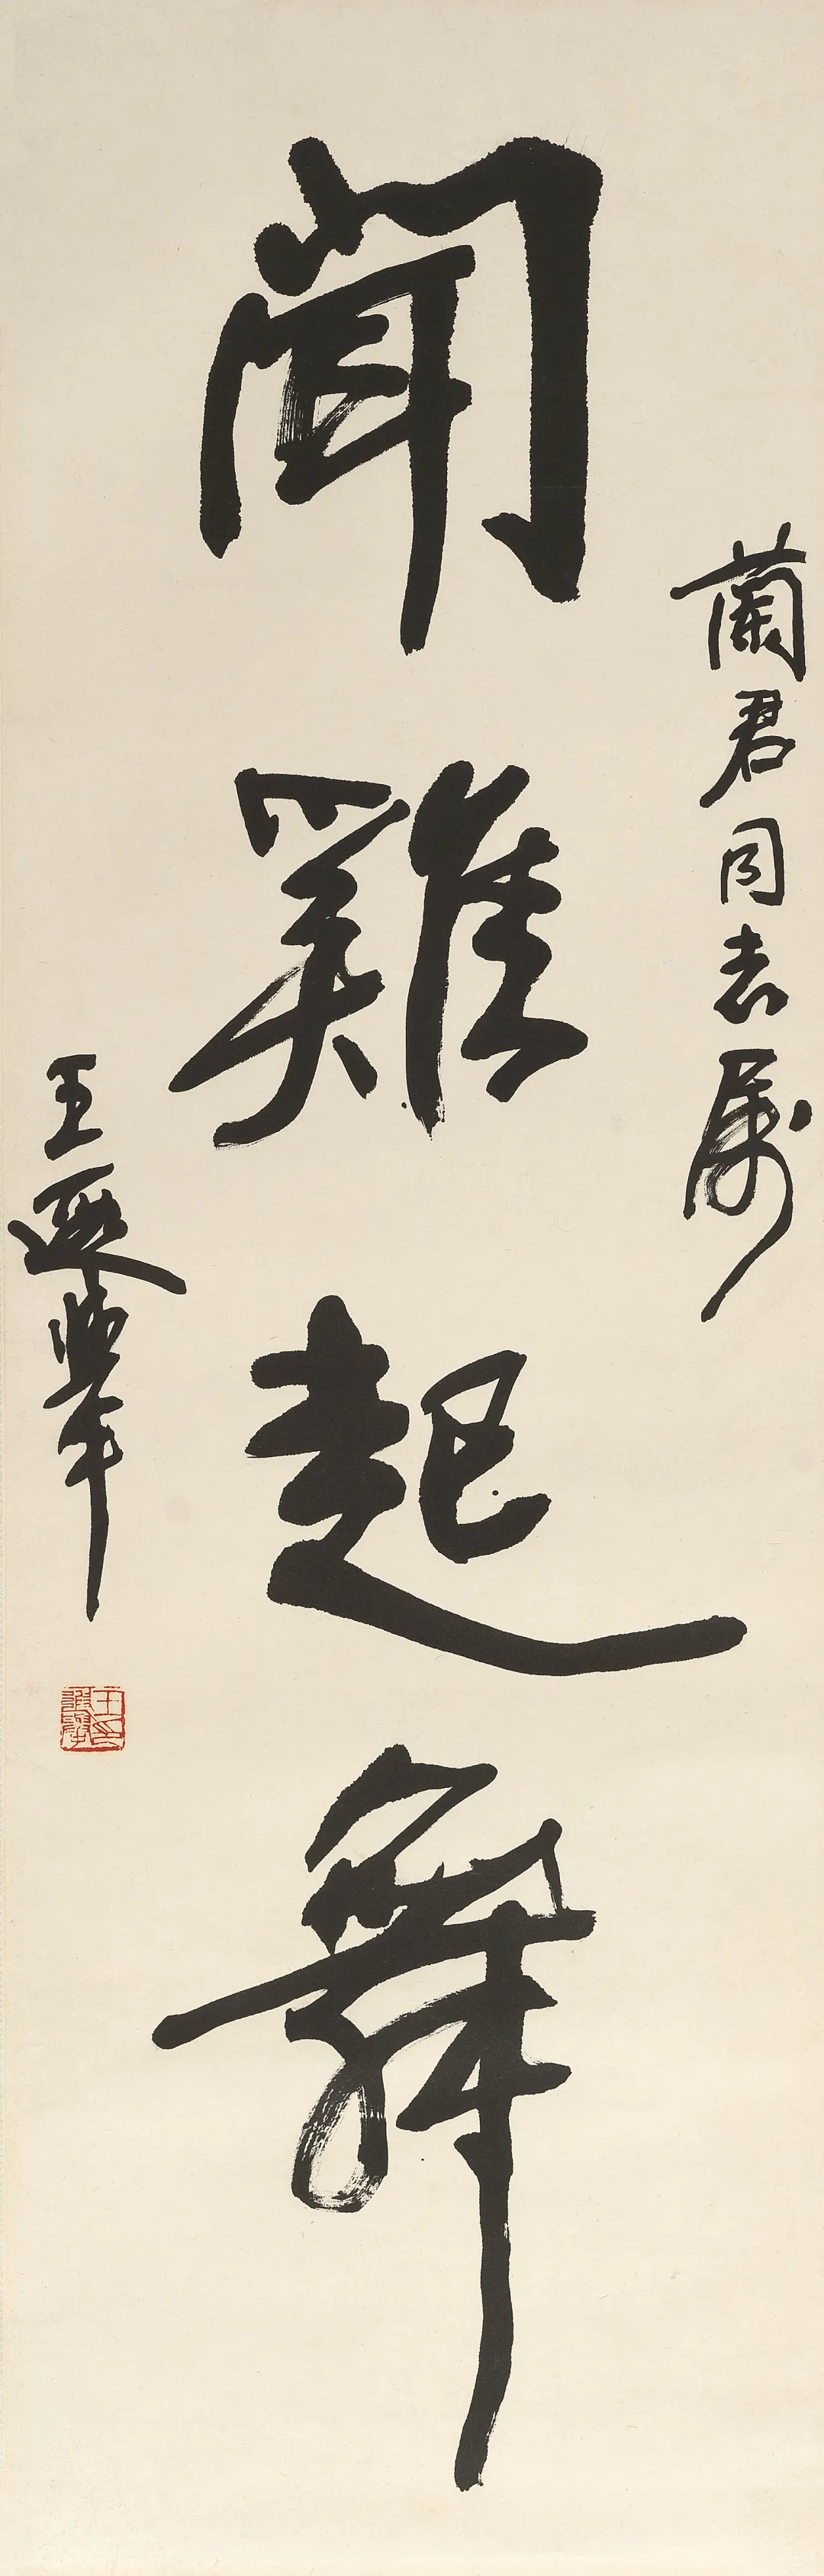 蘭君同志属
聞雞起舞
王遐舉
王遐舉印